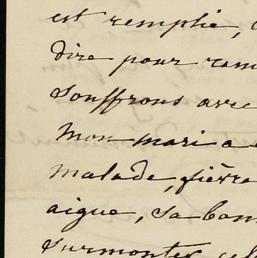 est remplie,
dire pour
souffrons avec
mon mari a
malade, fièvre
aigue, sa
surmonter